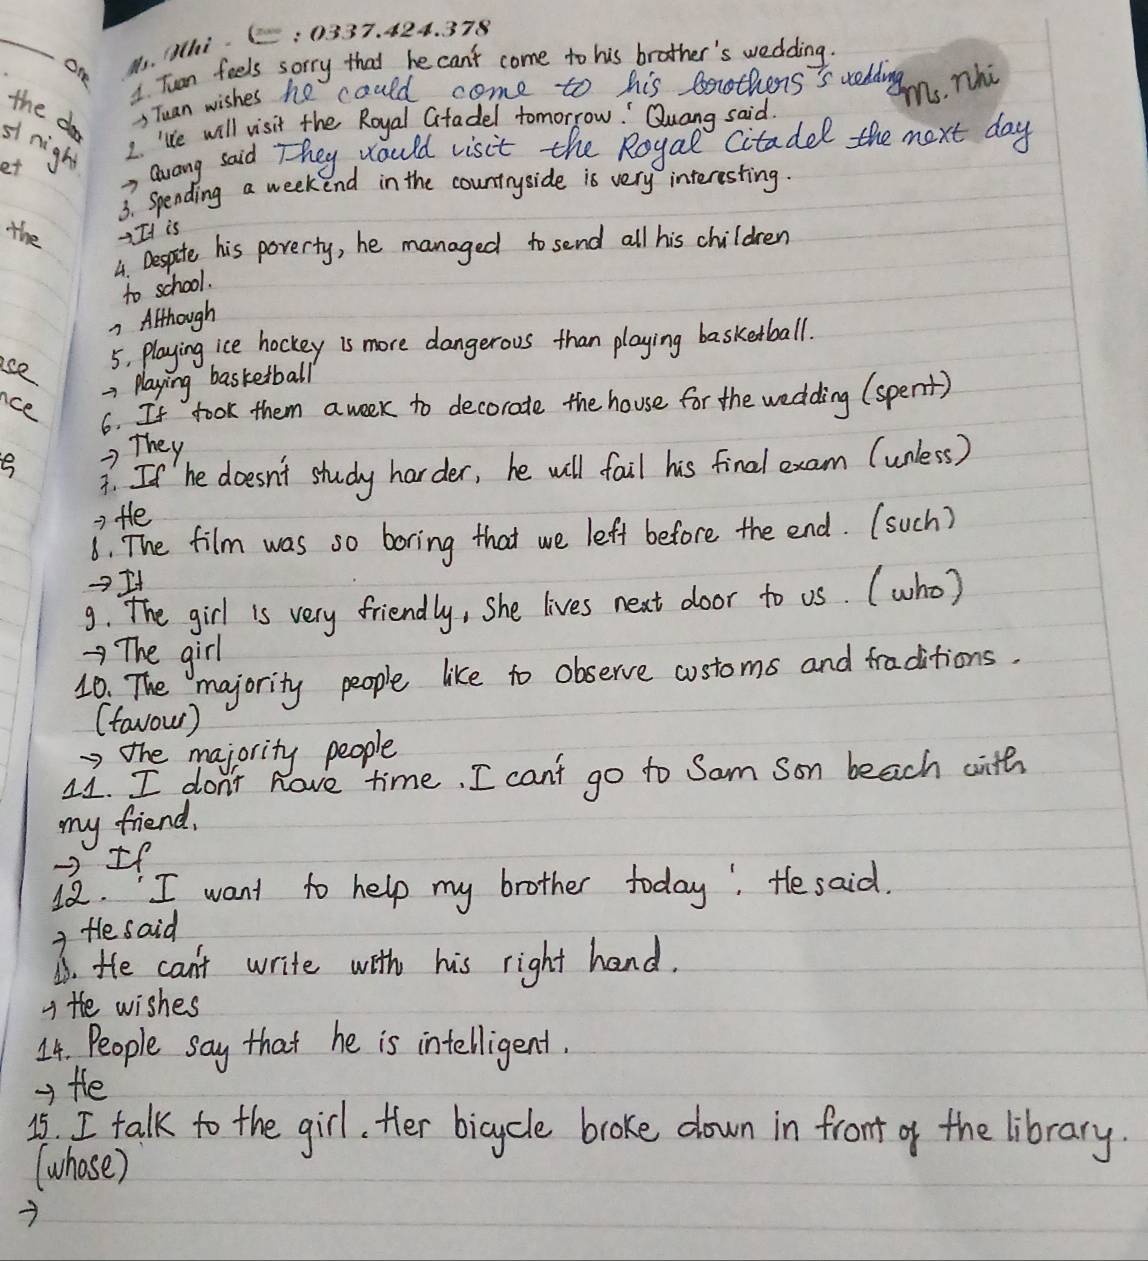 Ms. Nhi - : 0337.424.378
1. Tuan feels sorry that he can't come to his brother's wedding.
→ Tuan wishes he could come to his brothers's wedding
Ms. Nhi
2. 'We will visit the Royal Citadel tomorrow'. Quang said.
→ Quang said They would visit the Royal Citadel the next day
3. Spending a weekend in the countryside is very interesting.
→ It is
4. Despite his poverty, he managed to send all his children
to school.
→ Although
5. Playing ice hockey is more dangerous than playing basketball.
→ Playing basketball
6. It took them a week to decorate the house for the wedding (spent)
→ They
7. If he doesn't study harder, he will fail his final exam (unless)
→ He
8. The film was so boring that we left before the end. (such)
→ It
9. The girl is very friendly, She lives next door to us. (who)
→ The girl
10. The majority people like to observe customs and traditions.
(favour)
→ The majority people
11. I don't have time. I can't go to Sam Son beach with
my friend.
→ If
12. 'I want to help my brother today'. He said.
→ He said
13. He can't write with his right hand.
→ He wishes
14. People say that he is intelligent.
→ He
15. I talk to the girl. Her bicycle broke down in front of the library.
(whose)
→
One
the
st night
et
the
nce